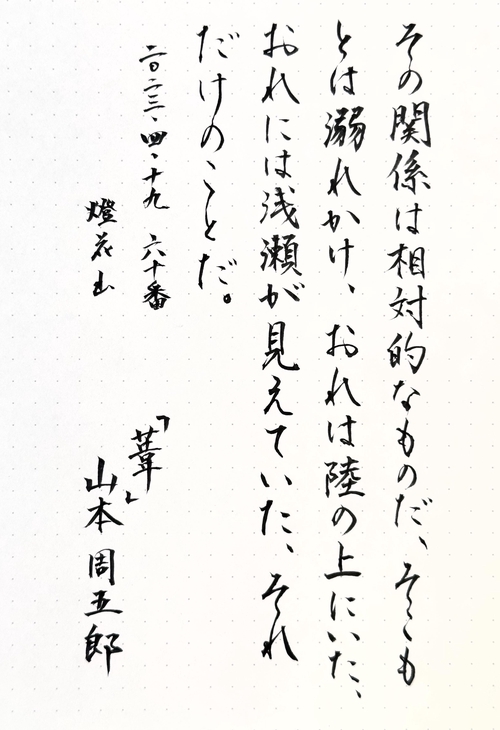 その関係は相対的なものだ、そも
とは溺れかけ、おれは陸の上にいた、
おれには浅瀬が見えていた、それ
だけのことだ。
二〇二三・四・十九 六十番
燈花
「葦」
山本周五郎